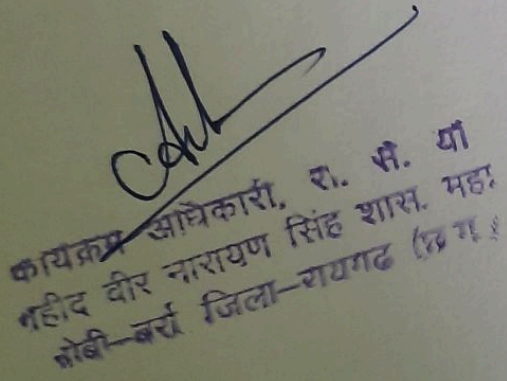 कार्यक्रम अधिकारी, रा. से. यो
शहीद वीर नारायण सिंह शास. महा.
जोबी-बर्रा जिला-रायगढ (छ.ग.)